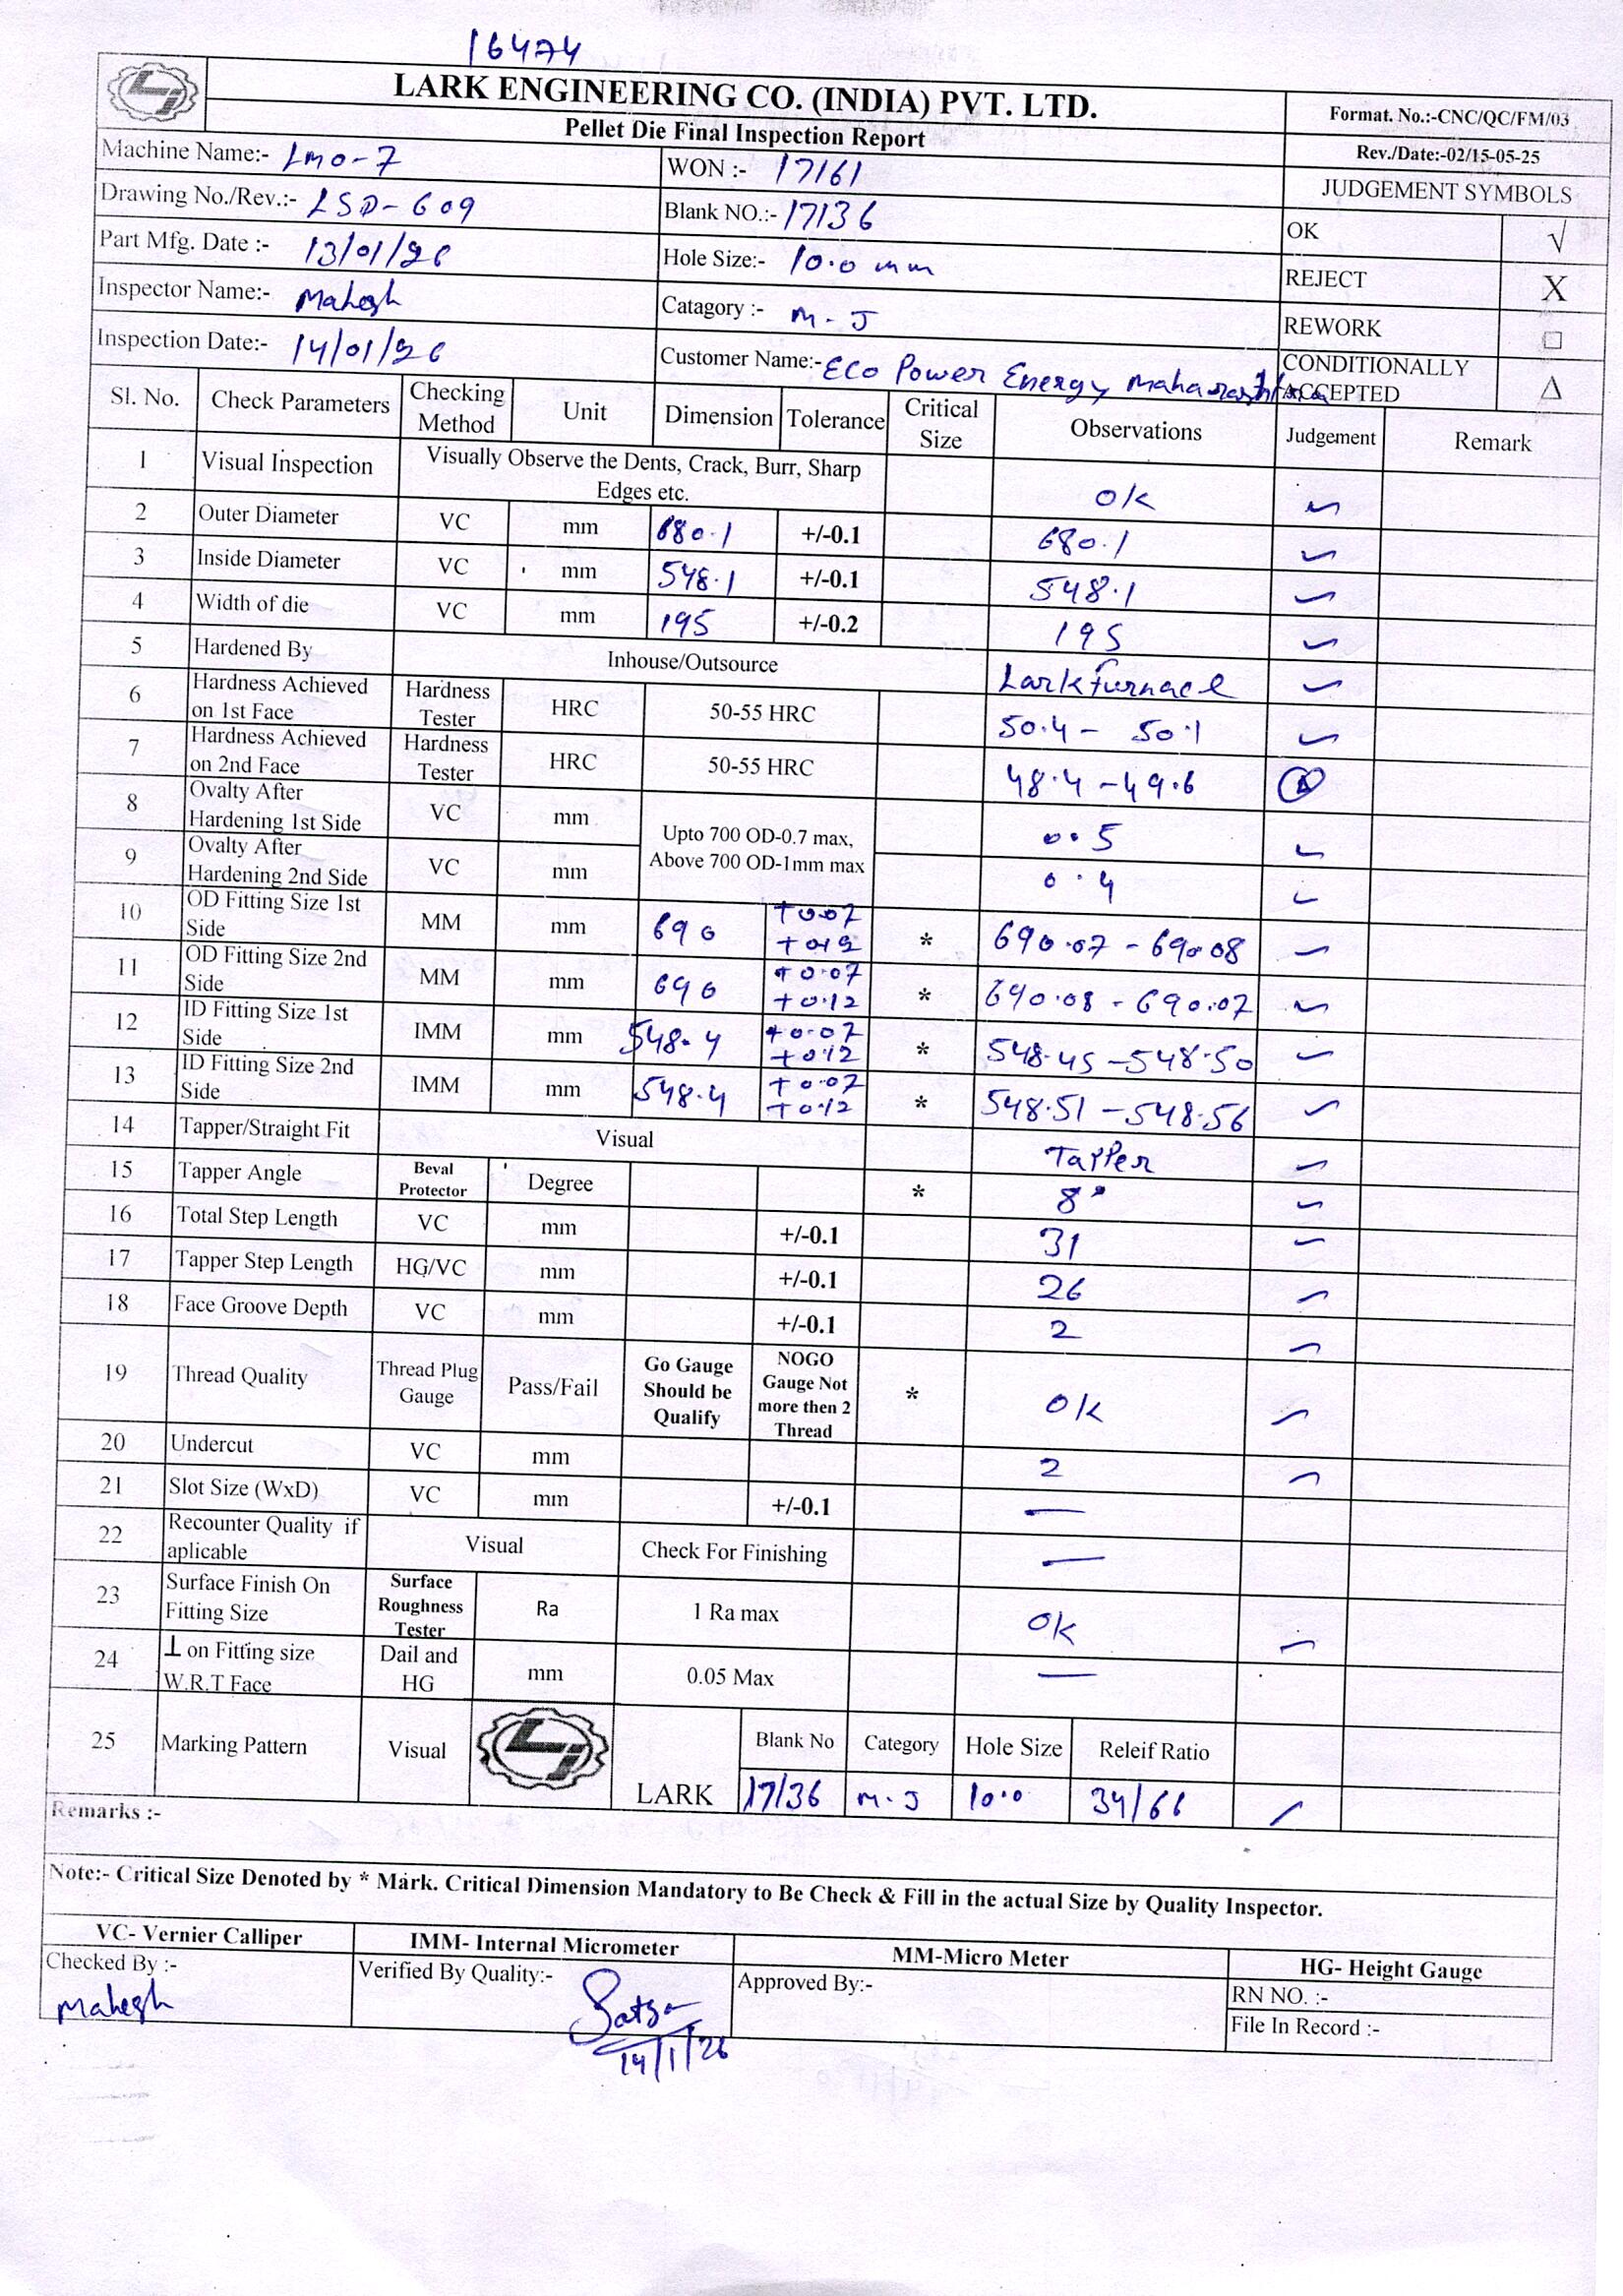 16474
LARK ENGINEERING CO. (INDIA) PVT. LTD.
Pellet Die Final Inspection Report
Format. No.:-CNC/QC/FM/03
Rev./Date:-02/15-05-25
Machine Name:- LMO-7
WON :- 17161
JUDGEMENT SYMBOLS
Drawing No./Rev.:- LSD-609
Blank NO.:- 17136
OK √
Part Mfg. Date :- 13/01/26
Hole Size:- 10.0 mm
REJECT X
Inspector Name:- Mahesh
Catagory :- M-J
REWORK □
Inspection Date:- 14/01/26
Customer Name:- Eco Power Energy Maharashtra
CONDITIONALLY ACCEPTED Δ
Sl. No. Check Parameters Checking Method Unit Dimension Tolerance Critical Size Observations Judgement Remark
1 Visual Inspection Visually Observe the Dents, Crack, Burr, Sharp Edges etc. ok ✓
2 Outer Diameter VC mm 680.1 +/-0.1 680.1 ✓
3 Inside Diameter VC mm 548.1 +/-0.1 548.1 ✓
4 Width of die VC mm 195 +/-0.2 195 ✓
5 Hardened By Inhouse/Outsource Lark furnace ✓
6 Hardness Achieved on 1st Face Hardness Tester HRC 50-55 HRC 50.4 - 50.1 ✓
7 Hardness Achieved on 2nd Face Hardness Tester HRC 50-55 HRC 48.4 - 49.6
8 Ovalty After Hardening 1st Side VC mm Upto 700 OD-0.7 max, Above 700 OD-1mm max 0.5 ✓
9 Ovalty After Hardening 2nd Side VC mm 0.4 ✓
10 OD Fitting Size 1st Side MM mm 690 +0.07 * 690.07 - 690.08 ✓
11 OD Fitting Size 2nd Side MM mm 690 +0.07 +0.12 * 690.08 - 690.07 ✓
12 ID Fitting Size 1st Side IMM mm 548.4 +0.07 +0.12 * 548.45 - 548.50 ✓
13 ID Fitting Size 2nd Side IMM mm 548.4 +0.07 +0.12 * 548.51 - 548.56 ✓
14 Tapper/Straight Fit Visual Tapper ✓
15 Tapper Angle Beval Protector Degree * 8° ✓
16 Total Step Length VC mm +/-0.1 31 ✓
17 Tapper Step Length HG/VC mm +/-0.1 26 ✓
18 Face Groove Depth VC mm +/-0.1 2 ✓
19 Thread Quality Thread Plug Gauge Pass/Fail Go Gauge Should be Qualify NOGO Gauge Not more then 2 Thread * ok ✓
20 Undercut VC mm 2 ✓
21 Slot Size (WxD) VC mm +/-0.1 —
22 Recounter Quality if aplicable Visual Check For Finishing —
23 Surface Finish On Fitting Size Surface Roughness Tester Ra 1 Ra max ok ✓
24 ⊥ on Fitting size W.R.T Face Dail and HG mm 0.05 Max —
25 Marking Pattern Visual LARK Blank No Category Hole Size Releif Ratio
17136 M-J 10.0 34/66 ✓
Remarks :-
Note:- Critical Size Denoted by * Mark. Critical Dimension Mandatory to Be Check & Fill in the actual Size by Quality Inspector.
VC- Vernier Calliper IMM- Internal Micrometer MM-Micro Meter HG- Height Gauge
Checked By :- Mahesh
Verified By Quality:- 14/1/26
Approved By:-
RN NO. :-
File In Record :-